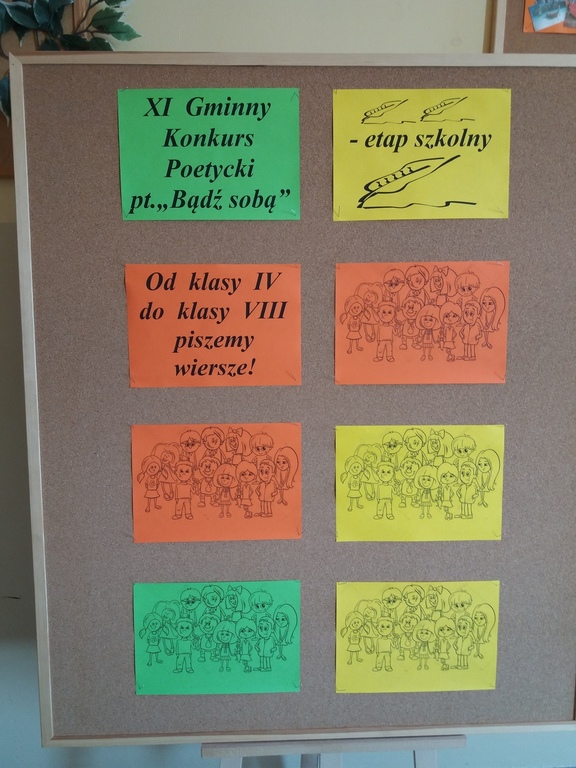 XI Gminny
Konkurs
Poetycki
pt.„Bądź sobą”
- etap szkolny
Od klasy IV
do klasy VIII
piszemy
wiersze!